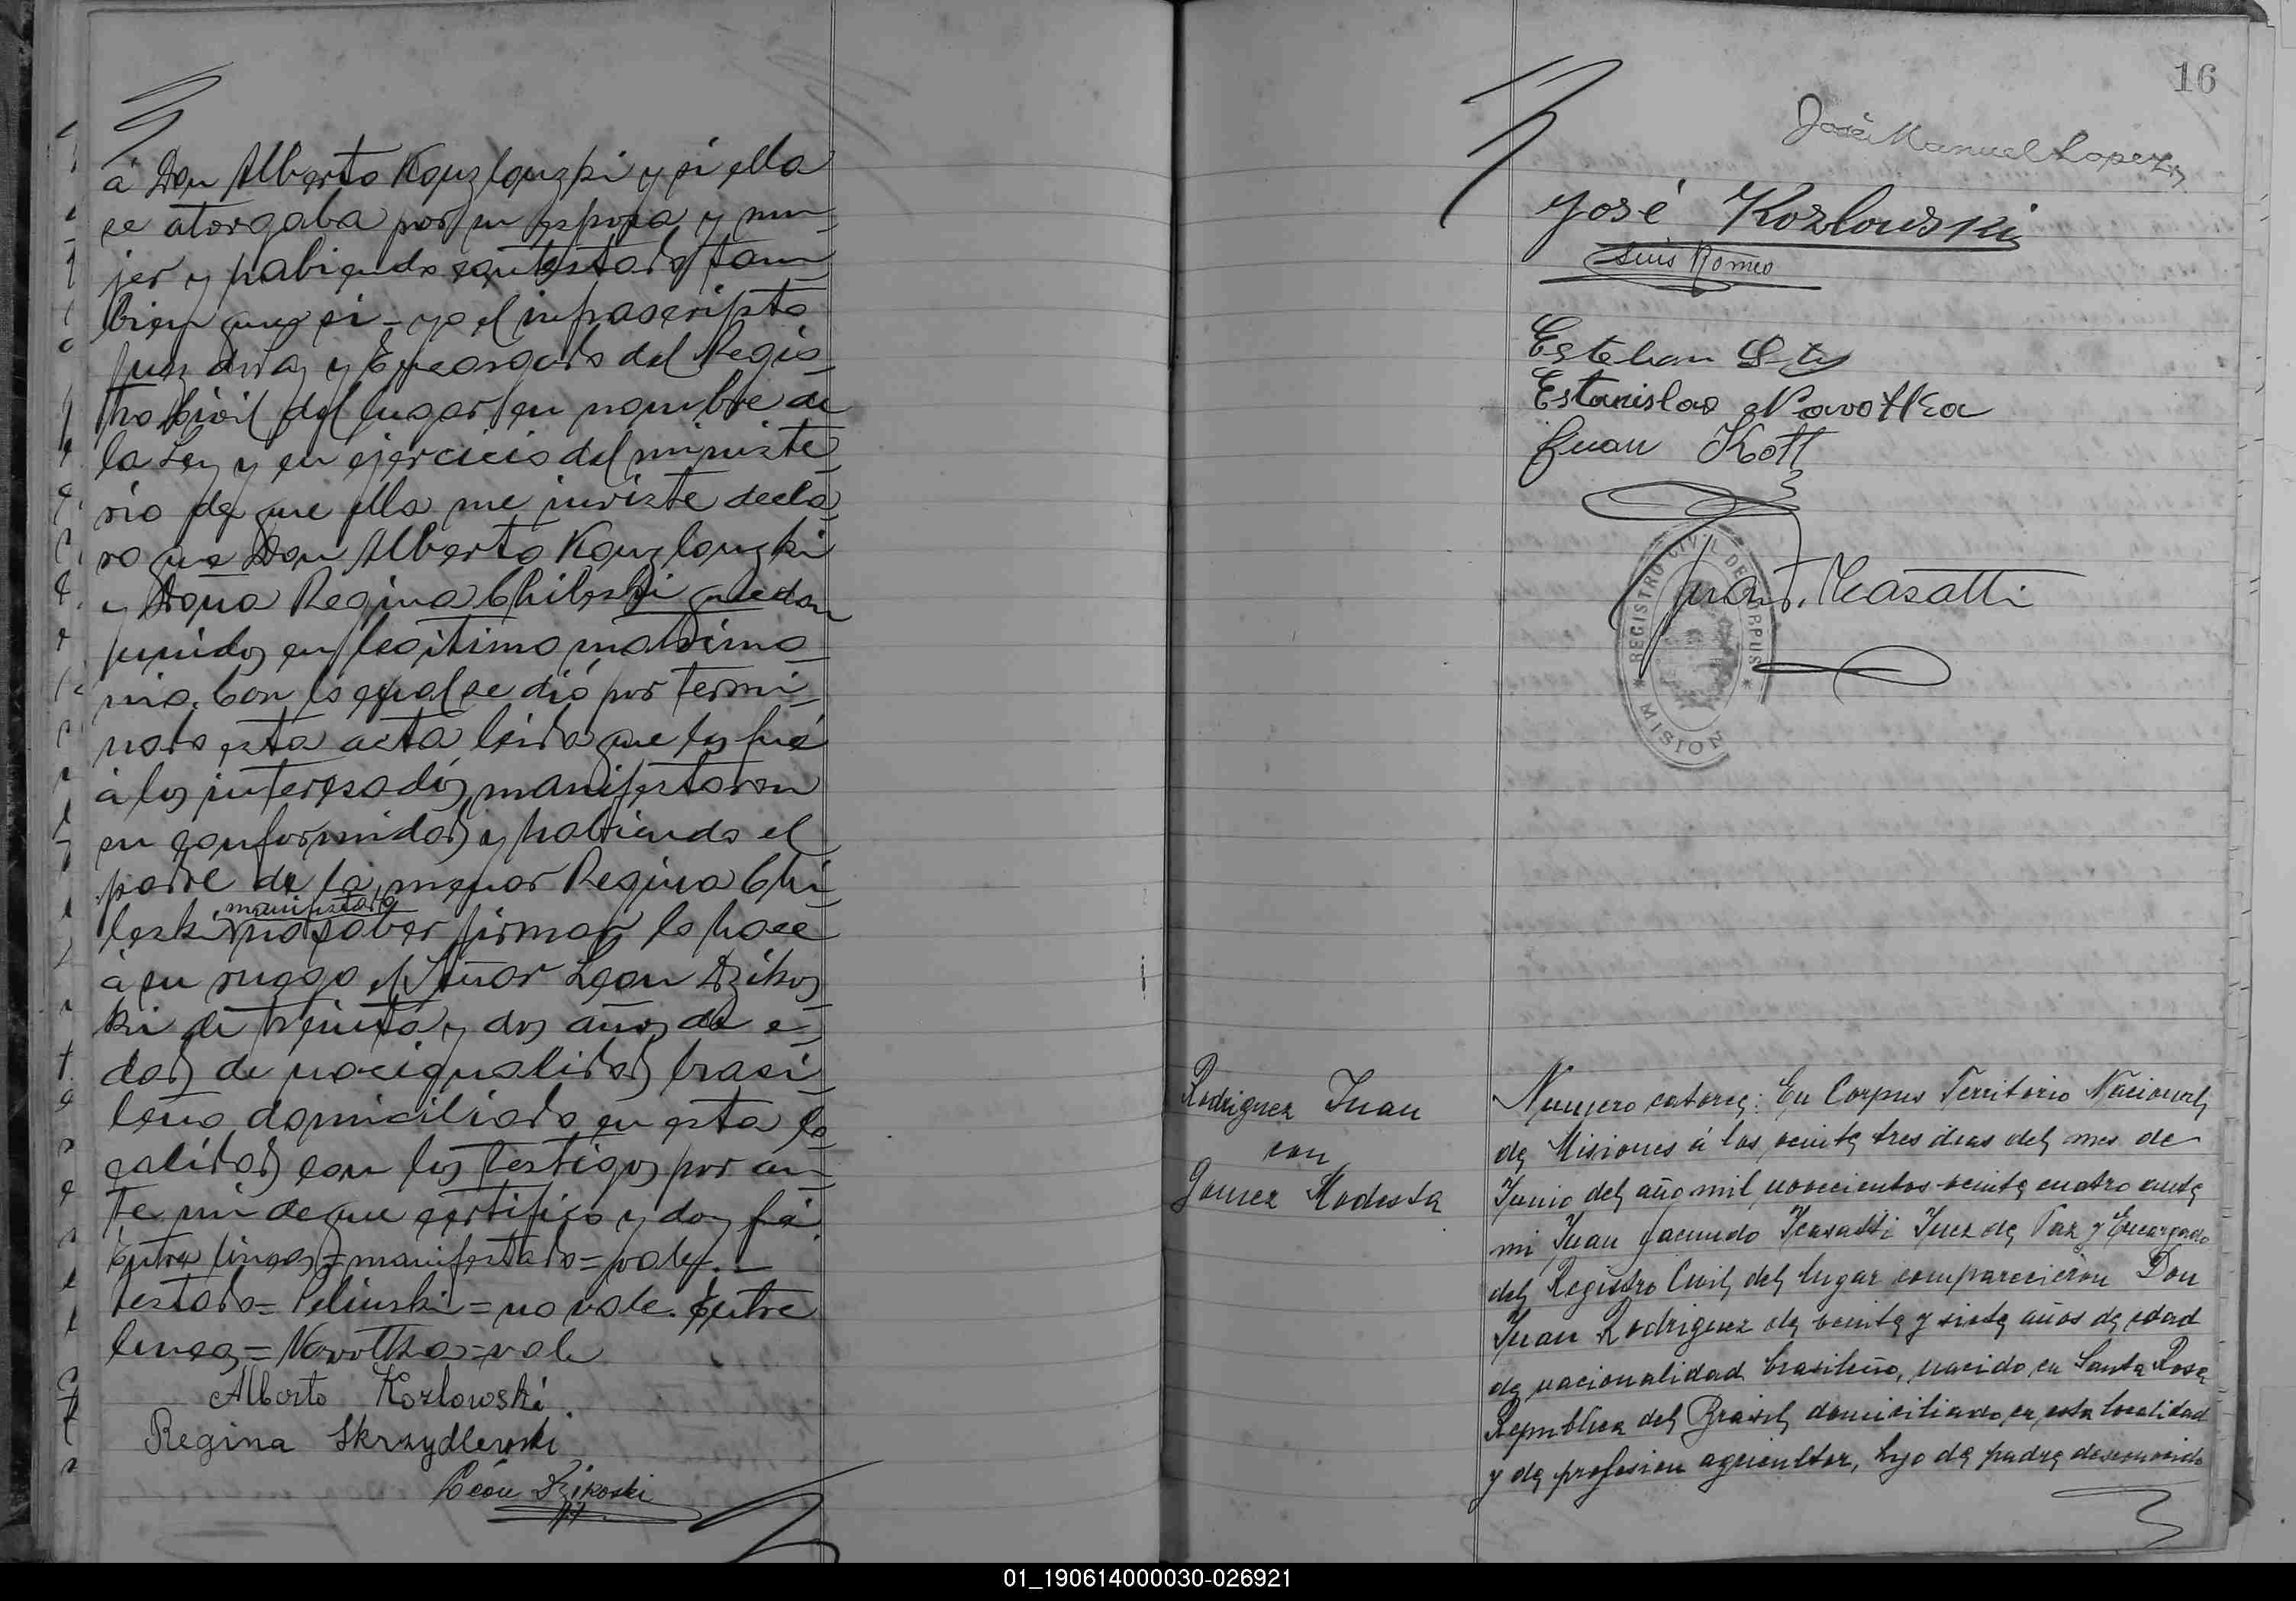 á Don Alberto Kouzlouzki y si ella
se atorgaba por su esposa y mu-
jer y habiendo contestado tam
bien que si - yo el infrascripto
Juez de Paz y Encargado del Regis-
tro Civil del lugar en nombre de
la Ley y en ejercicio del ministe-
rio de que ella me inviste decla-
ro que Don Alberto Kouzlouzki
y Doña Regina Chileski quedan
unidos en legitimo matrimo-
nio. Con lo cual se dió por termi-
nado esta acta leida que les fué
á los interesados, manifestaron
su conformidad y habiendo el
padre de la menor Regina Chi-
leski manifestado no saber firmar lo hace
á su ruego el Señor Leon Dzikos
ki de treinta y dos años de e-
dad de nacionalidad brasi
leño domiciliado en esta lo-
calidad con los testigos por an-
te mi de que certifico y doy fé
Entre lineas = manifestado = vale. -
testado = Pelinski = no vale. Entre
lineas = Novottka = vale
Alberto Kozlowski
Regina Skrzydlewski
León Dzikoski
16
José Manuel Lopez
José Kozlowski
Luis Romeo
Esteban
Estanislao Navottka
Juan Kott
Juan F. Icasatti
REGISTRO CIVIL DE CORPUS
MISION
Rodriguez Juan
con
Gomez Modesta
Numero catorce: En Corpus Territorio Nacional
de Misiones á los veinte tres dias del mes de
Junio del año mil novecientos veinte cuatro ante
mi Juan Facundo Icasatti Juez de Paz y Encargado
del Registro Civil del lugar comparecieron Don
Juan Rodriguez de veinte y siete años de edad
de nacionalidad brasileño, nacido en Santa Rosa
Republica del Brasil domiciliado en esta localidad
y de profesion agricultor, hijo de padre desconocido
01_190614000030-026921